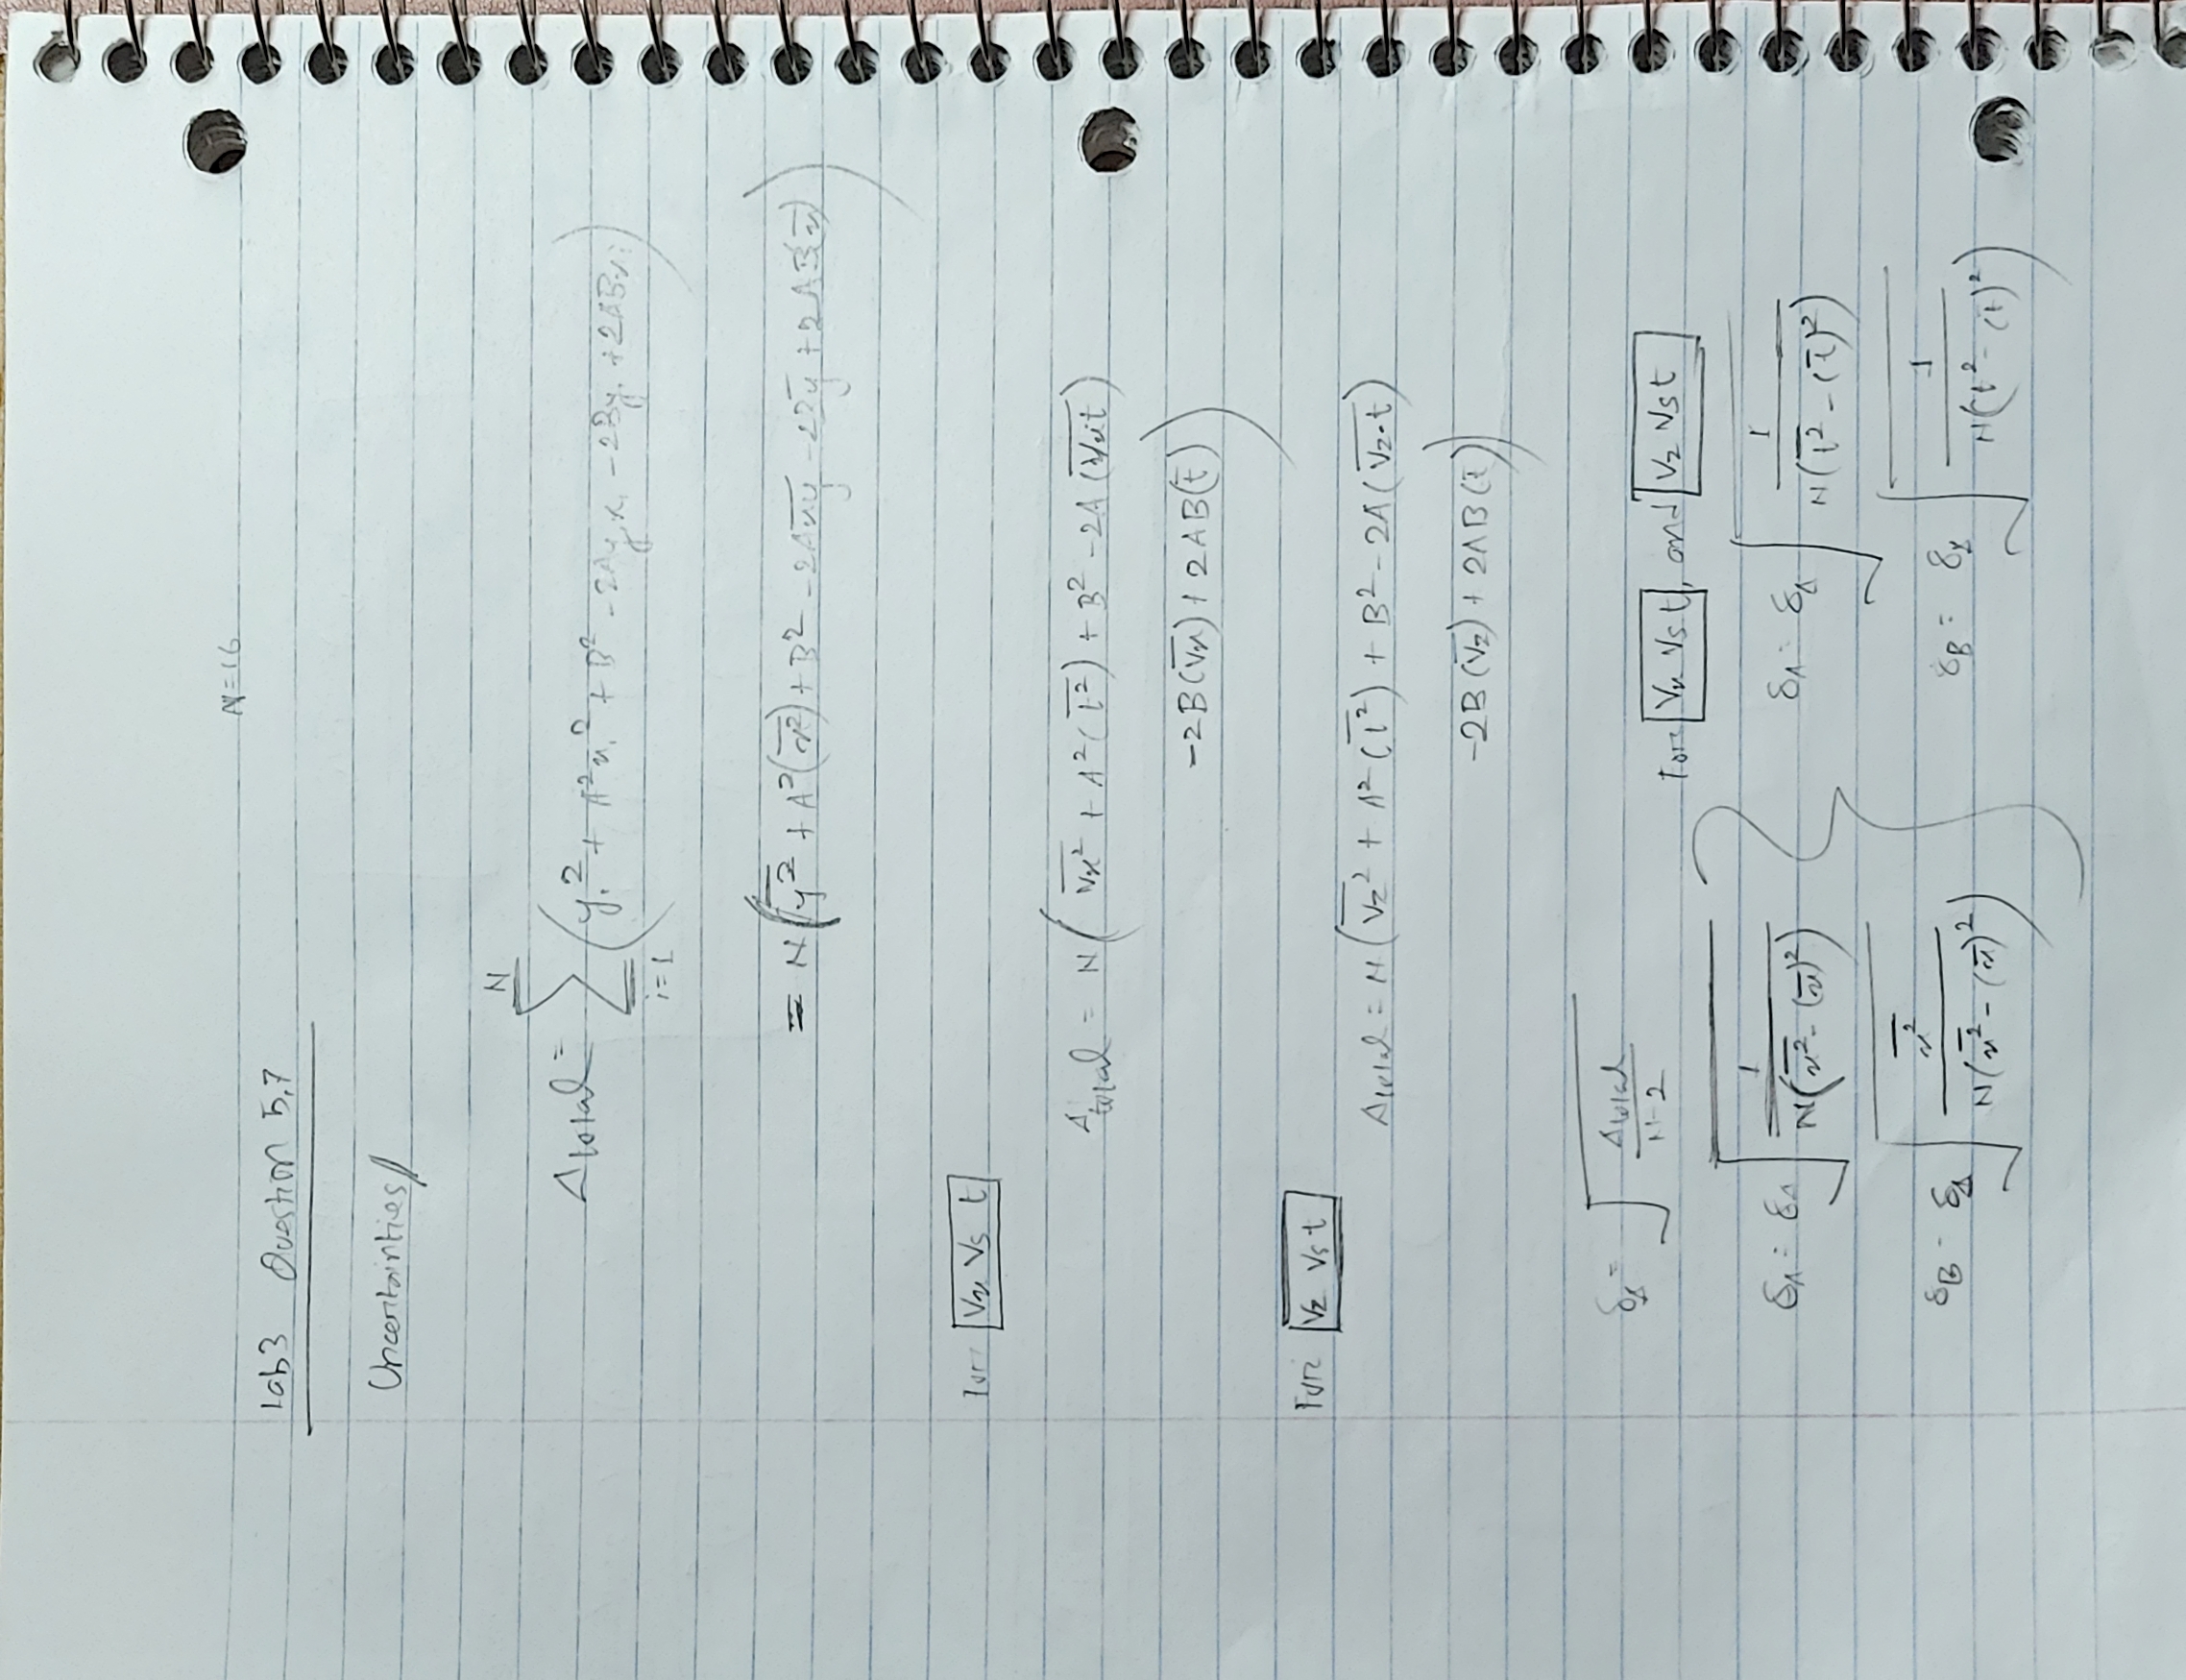 N=16
Lab3 Question 5,7
Uncertainties//
Δtotal = \sum_{i=1}^{N} (y_i^2 + A^2 x_i^2 + B^2 - 2A y_i x_i - 2B y_i + 2ABx_i)
= N(\overline{y^2} + A^2(\overline{x^2}) + B^2 - 2A\overline{xy} - 2B\overline{y} + 2AB(\overline{x}))
For [Vx Vs t]
Δtotal = N(\overline{Vx^2} + A^2(\overline{t^2}) + B^2 - 2A(\overline{Vxt})
-2B(\overline{Vx}) + 2AB(\overline{t}))
For [Vz Vs t]
Δtotal = N(\overline{Vz}^2 + A^2(\overline{t^2}) + B^2 - 2A(\overline{Vz·t})
-2B(\overline{Vz}) + 2AB(\overline{t}))
δ_Δ = \sqrt{\frac{Δtotal}{N-2}}
For [Vx Vs t], and [Vz Vs t]
δ_A = δ_Δ \sqrt{\frac{1}{N(\overline{x^2} - (\overline{x})^2)}} δ_A = δ_Δ \sqrt{\frac{1}{N(\overline{t^2} - (\overline{t})^2)}}
δ_B = δ_Δ \sqrt{\frac{\overline{x^2}}{N(\overline{x^2} - (\overline{x})^2)}} δ_B = δ_Δ \sqrt{\frac{1}{N(t^2 - (t)^2)}}